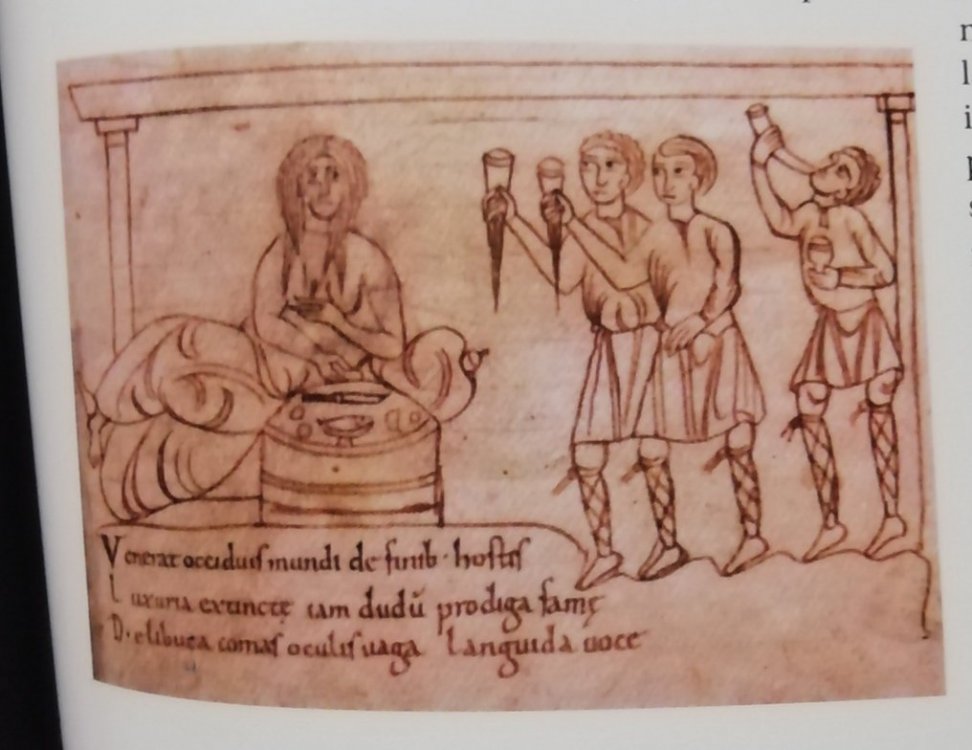 Venerat occiduis mundi de finib· hostis
Luxuria extinctę iam dudū prodiga famę
Delibuta comas oculis uaga languida uoce